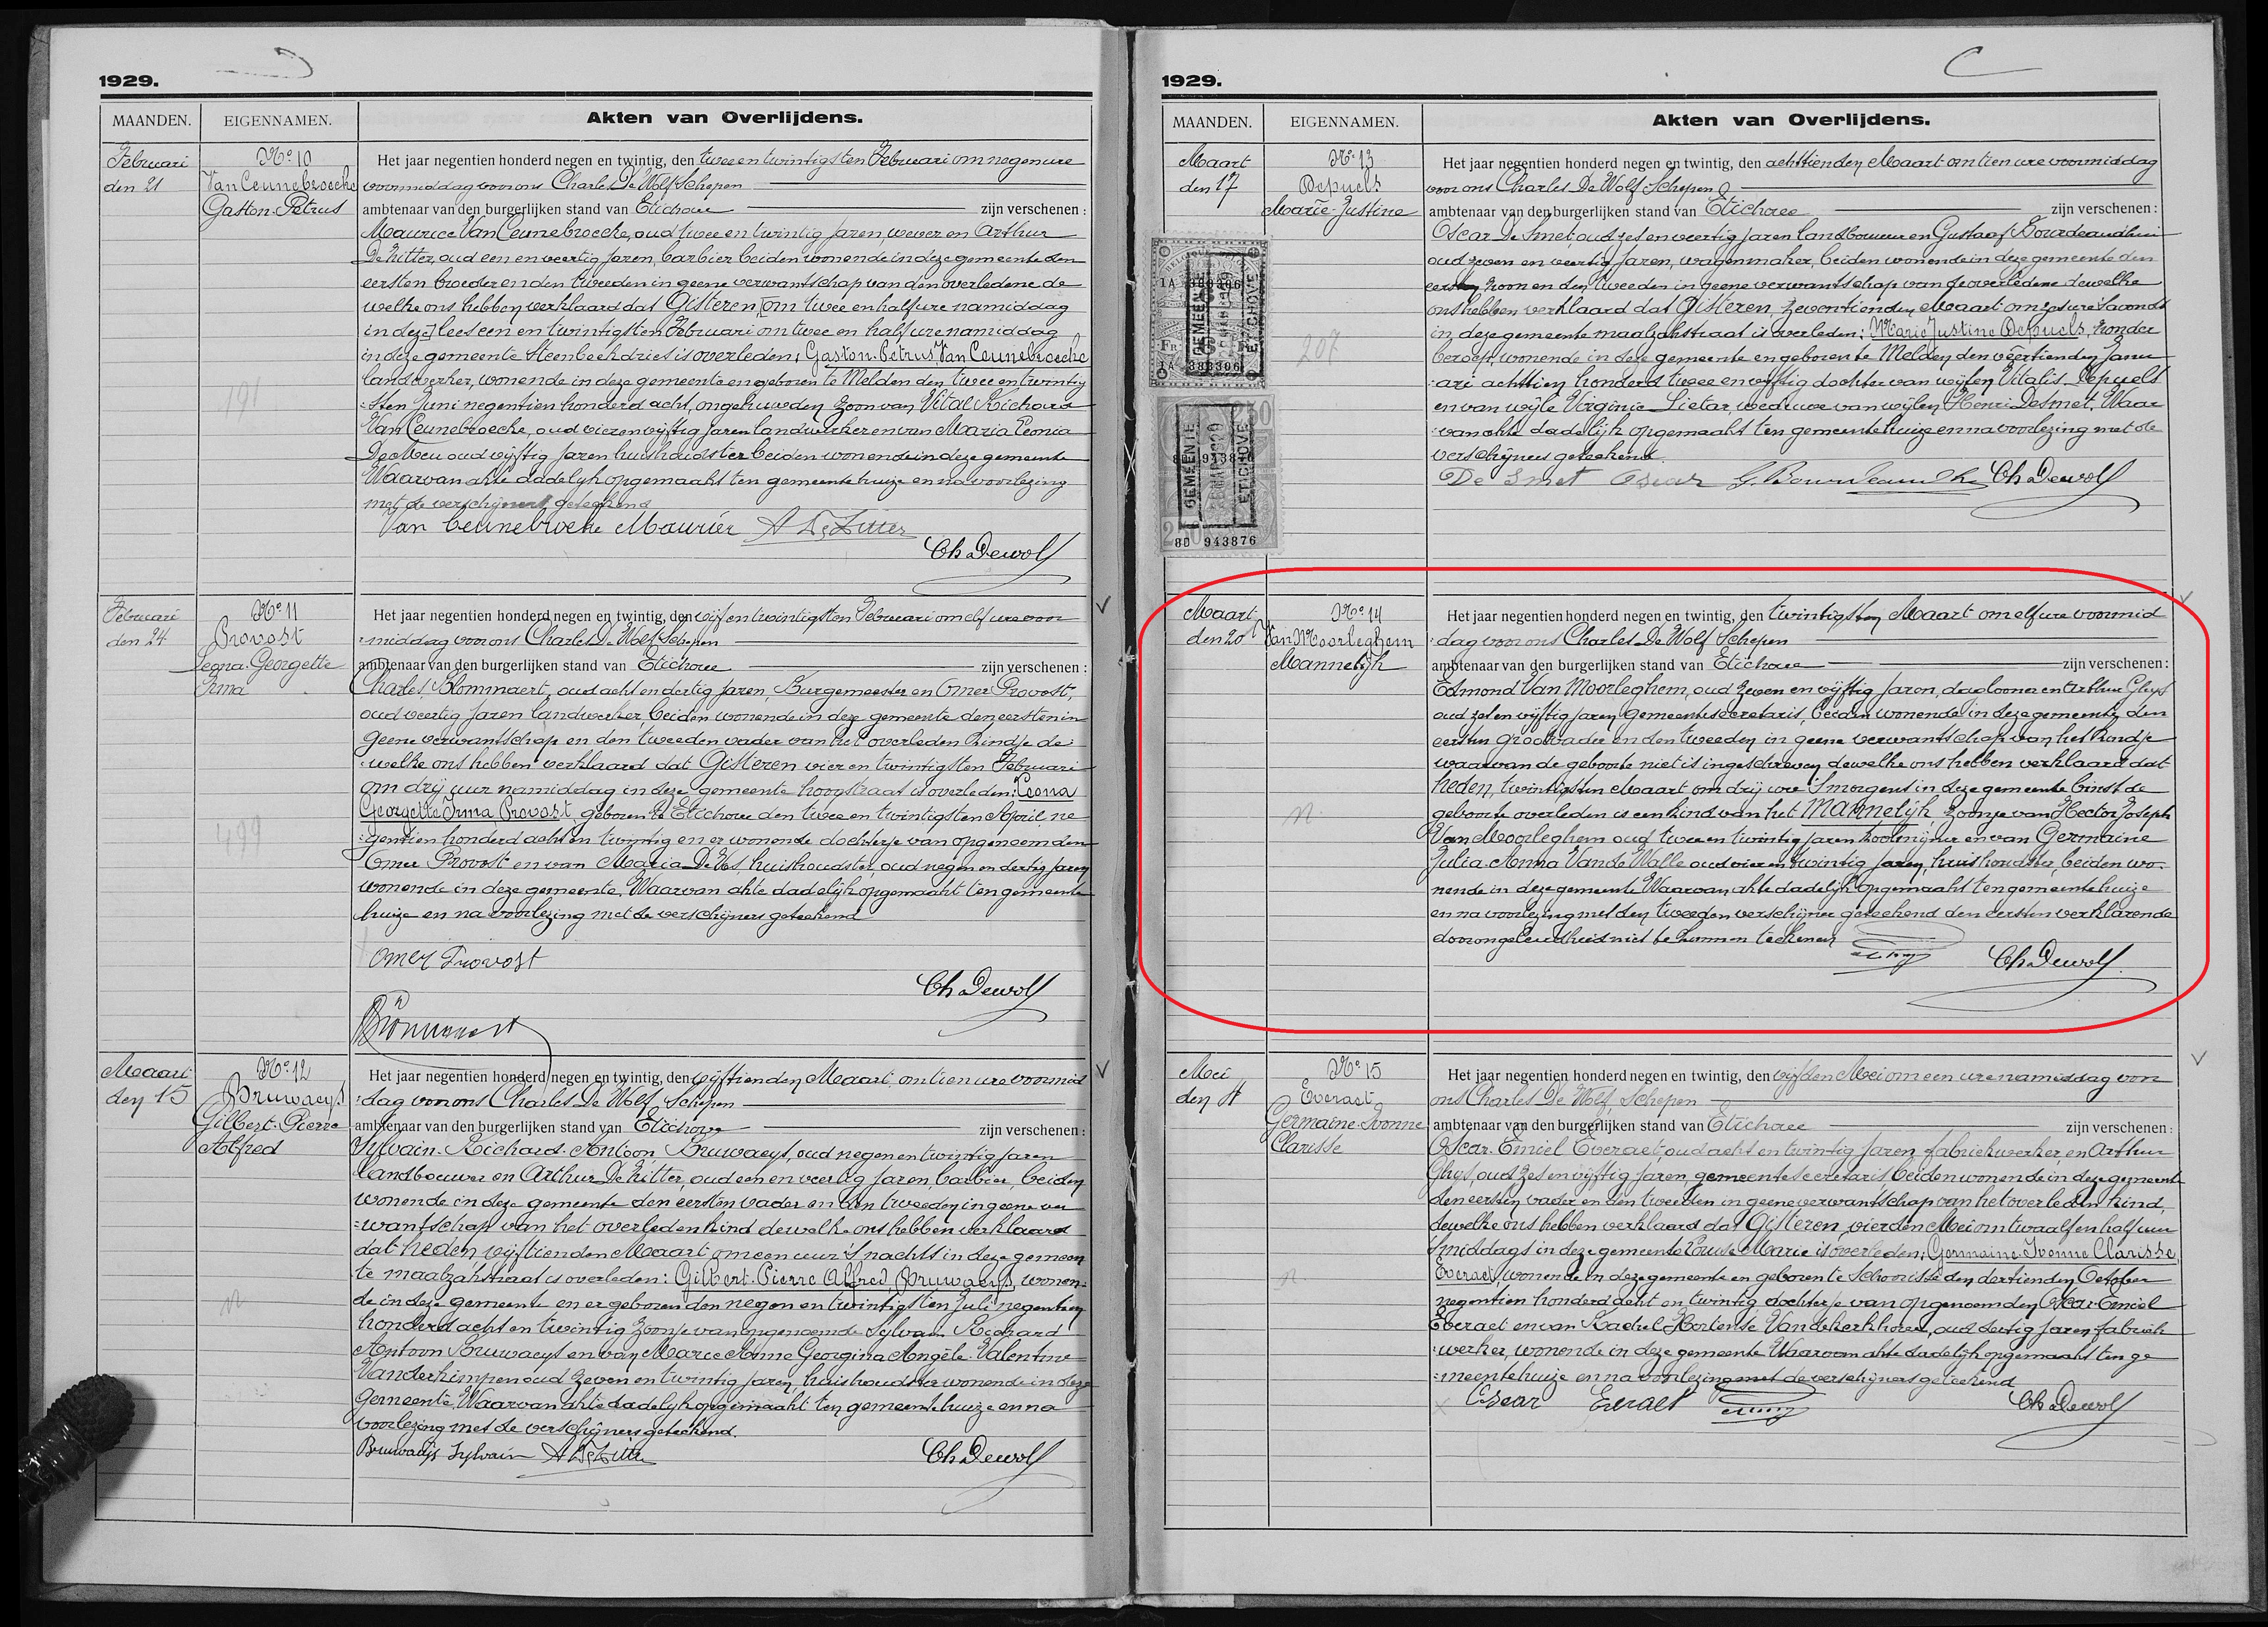 1929.
MAANDEN.
EIGENNAMEN.
Akten van Overlijdens.
Februari
den 21
No 10
Van Ceunebroecke
Gaston-Petrus
Het jaar negentien honderd negen en twintig, den twee en twintigsten Februari om negen ure
voormiddag voor ons Charles De Wolf Schepen
ambtenaar van den burgerlijken stand van Etichove zijn verschenen:
Maurice Van Ceunebroecke, oud twee en twintig jaren, wever en Arthur
De Ritter, oud een en veertig jaren, barbier beiden wonende in deze gemeente den
eersten broeder en den tweeden in geene verwantschap van den overledene de
welke ons hebben verklaard dat Gisteren om twee en half ure namiddag
in deze lees een en twintigsten Februari om twee en half ure namiddag
in deze gemeente Steenbeekdries is overleden: Gaston-Petrus Van Ceunebroecke
landwerker, wonende in deze gemeente en geboren te Melden den twee en twintig
:sten Juni negentien honderd acht, ongehuwden zoon van Vital Richard
Van Ceunebroecke, oud vier en vijftig jaren landwerker en van Maria Leonia
De Meu oud vijftig jaren huishoudster beiden wonende in deze gemeente
Waarvan akte dadelijk opgemaakt ten gemeentehuize en na voorlezing
met de verschijners geteekend
191
Van Ceunebroeke Maurice A De Ritter
Ch Dewolf
Februari
den 24
No 11
Provost
Leona-Georgette
Irma
Het jaar negentien honderd negen en twintig, den vijf en twintigsten Februari om elf ure voor
:middag voor ons Charles De Wolf Schepen
ambtenaar van den burgerlijken stand van Etichove zijn verschenen:
Charles Blommaert, oud acht en dertig jaren, Burgemeester en Omer Provost,
oud veertig jaren landwerker, beiden wonende in deze gemeente den eersten in
geene verwantschap en den tweeden vader van het overleden kindje de
:welke ons hebben verklaard dat Gisteren vier en twintigsten Februari
om drij uur namiddag in deze gemeente hoogstraat is overleden: Leona
Georgette Irma Provost, geboren te Etichove den twee en twintigsten April ne
:gentien honderd acht en twintig en er wonende dochterje van opgenoemden
Omer Provost en van Maria De Vos, huishoudster, oud negen en dertig jaren
wonende in deze gemeente. Waarvan akte dadelijk opgemaakt ten gemeente
huize en na voorlezing met de verschijners geteekend
499
Omer Provost
Ch Dewolf
Blommaert
Maart
den 15
No 12
Bruwaeys
Gilbert-Pierre
Alfred
Het jaar negentien honderd negen en twintig, den vijftienden Maart, om tien ure voormid
:dag voor ons Charles De Wolf Schepen
ambtenaar van den burgerlijken stand van Etichove zijn verschenen:
Sylvain-Richard-Antoon Bruwaeys, oud negen en twintig jaren
landbouwer en Arthur De Ritter, oud een en veertig jaren, barbier, beiden
wonende in deze gemeente den eersten vader en den tweeden in geene ver
:wantschap van het overleden kind dewelke ons hebben verklaard
dat heden, vijftienden Maart om een uur 's nachts in deze gemeen
te maalzakstraat is overleden: Gilbert-Pierre Alfred Bruwaeys, wonen:
de in deze gemeente en er geboren den negen en twintigsten Juli negentien
honderd acht en twintig zoontje van opgenoemde Sylvain Richard
Antoon Bruwaeys en van Marie Anne Georgina Angèle Valentine
Vanderkimpen oud zeven en twintig jaren, huishoudster wonende in deze
gemeente. Waarvan akte dadelijk opgemaakt ten gemeentehuize en na
voorlezing met de verschijners geteekend.
n
Bruwaeys Sylvain A De Ritter
Ch Dewolf
1929.
MAANDEN.
EIGENNAMEN.
Akten van Overlijdens.
Maart
den 17
No 13
Depuels
Marie-Justine
Het jaar negentien honderd negen en twintig, den achttienden Maart om tien ure voormiddag
voor ons Charles De Wolf Schepen
ambtenaar van den burgerlijken stand van Etichove zijn verschenen:
Oscar De Smet, oud zes en veertig jaren landbouwer en Gustaaf Bourdeaudhui
oud zeven en veertig jaren, wagenmaker, beiden wonende in deze gemeente den
eersten zoon en den tweeden in geene verwantschap van de overledene dewelke
ons hebben verklaard dat Gisteren, zeventienden Maart om zes ure 's avonds
in deze gemeente maalzakstraat is overleden: Marie Justine Depuels, zonder
beroep, wonende in deze gemeente en geboren te Melden den veertienden Janu
:ari achttien honderd twee en vijftig dochter van wijlen Vitalis Depuels
en van wijle Virginie Lietar, weduwe van wijlen Henri Desmet. Waar
:van akte dadelijk opgemaakt ten gemeentehuize en na voorlezing met de
verschijners geteekend
207
De Smet Oscar G. Bourdeaudhui Ch Dewolf
1A 383306
GEMEENTE
ETICHOVE
1A 383306
8D 943876
GEMEENTE
ETICHOVE
8D 943876
Maart
den 20
No 14
Van Moorleghem
Mannelijk
Het jaar negentien honderd negen en twintig, den twintigsten Maart om elf ure voormid
:dag voor ons Charles De Wolf Schepen
ambtenaar van den burgerlijken stand van Etichove zijn verschenen:
Edmond Van Moorleghem, oud zeven en vijftig jaren, daglooner en Arthur Ghys
oud zes en vijftig jaren gemeentesecretaris, beiden wonende in deze gemeente den
eersten grootvader en den tweeden in geene verwantschap van het kindje
waarvan de geboorte niet is ingeschreven dewelke ons hebben verklaard dat
heden, twintigsten Maart om drij ure 's morgens in deze gemeente binst de
geboorte overleden is een kind van het Mannelijk, zoontje van Hector Joseph
Van Moorleghem oud twee en twintig jaren koolmijner en van Germaine
Julia Anna Van de Walle oud vier en twintig jaren, huishoudster, beiden wo:
nende in deze gemeente Waarvan akte dadelijk opgemaakt ten gemeentehuize
en na voorlezing met den tweeden verschijner geteekend den eersten verklarende
door ongeleerdheid niet te kunnen teekenen
n
Ch Dewolf
Mei
den 4
No 15
Everaet
Germaine-Ivonne
Clarisse
Het jaar negentien honderd negen en twintig, den vijfden Mei om een ure namiddag voor
ons Charles De Wolf, Schepen
ambtenaar van den burgerlijken stand van Etichove zijn verschenen:
Oscar-Emiel Everaet, oud acht en twintig jaren, fabriekwerker, en Arthur
Ghys, oud zes en vijftig jaren, gemeentesecretaris beiden wonende in deze gemeente
den eersten vader en den tweeden in geene verwantschap van het overleden kind,
dewelke ons hebben verklaard dat Gisteren vierden Mei om twaalf en half uur
's middags in deze gemeente Louise-Marie is overleden: Germaine-Ivonne Clarisse
Everaet, wonende in deze gemeente en geboren te Schoorisse den dertienden October
negentien honderd acht en twintig dochterje van opgenoemden Oscar-Emiel
Everaet en van Rachel Hortense Vandekerkhove, oud dertig jaren, fabriek
:werker, wonende in deze gemeente Waarvan akte dadelijk opgemaakt ten ge
:meentehuize en na voorlezing met de verschijners geteekend
n
Oscar Everaet
Ch Dewolf